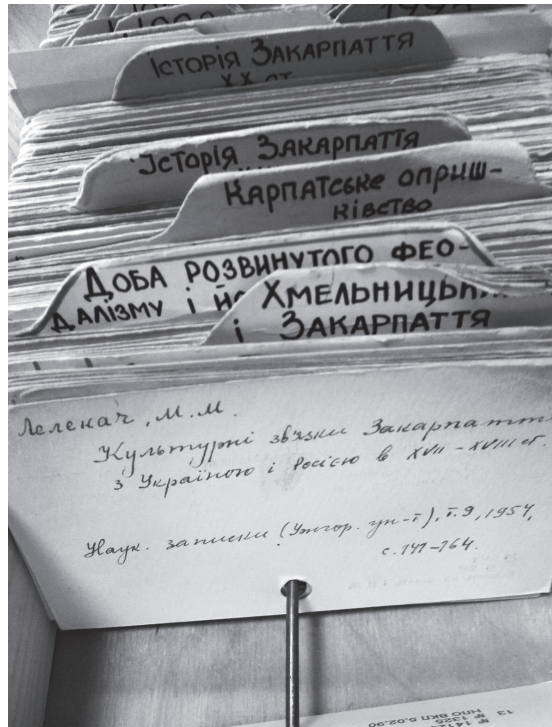 Історія Закарпаття
XX ст.
Історія Закарпаття
Карпатське оприш-
ківство
Доба розвинутого фео-
далізму і
Хмельницьк
і Закарпаття
Лелекач, М.М.
Культурні зв'язки Закарпаття
з Україною і Росією в XVII–XVIII ст.
Наук. записки (Ужгор. ун-т), т.9, 1954,
с.141–164.